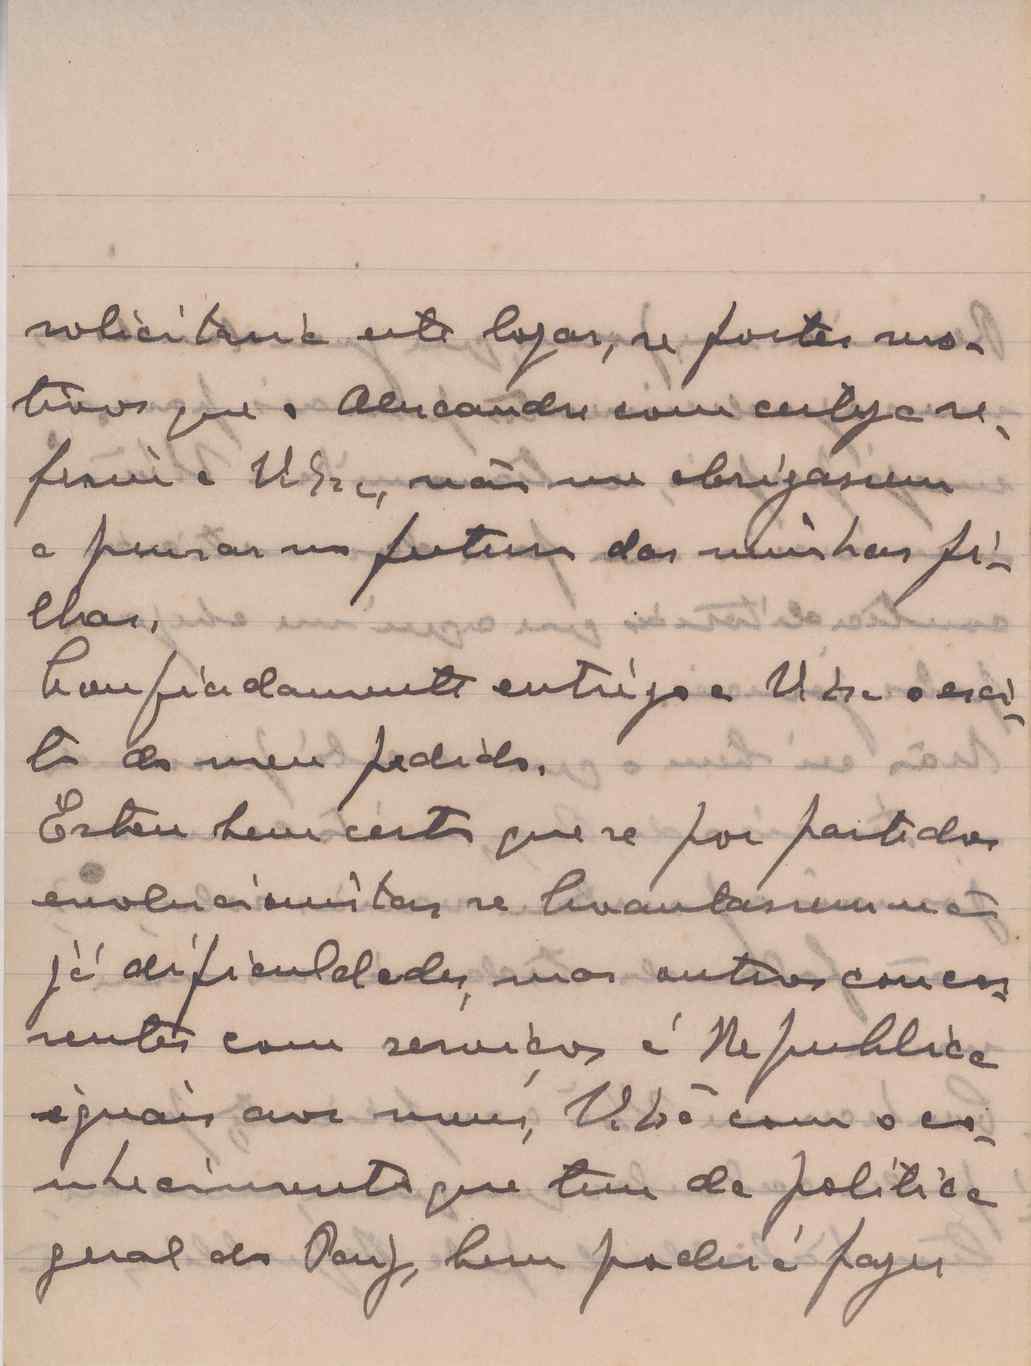 solicitaria este logar, se fortes mo-
tivos que o Alexandre com certeza re-
feriu a V. Exa, não me obrigassem
a pensar no futuro das minhas fi-
lhas.
Confiadamente entrego a V. Exa o exi-
to do meu pedido.
Estou bem certo que se por partidos
evolucionistas se levantassem não
já dificuldades, mas outros concor-
rentes com serviços á Republica
iguais aos meus, V. Exa com o co-
nhecimento que tem da politica
geral do Paiz, bem poderá fazer